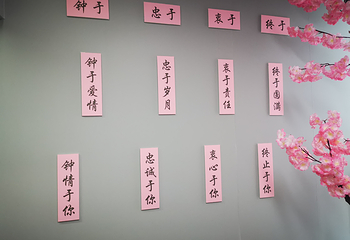 钟于
忠于
衷于
终于
钟于爱情
忠于岁月
衷于责任
终于圆满
钟情于你
忠诚于你
衷心于你
终止于你